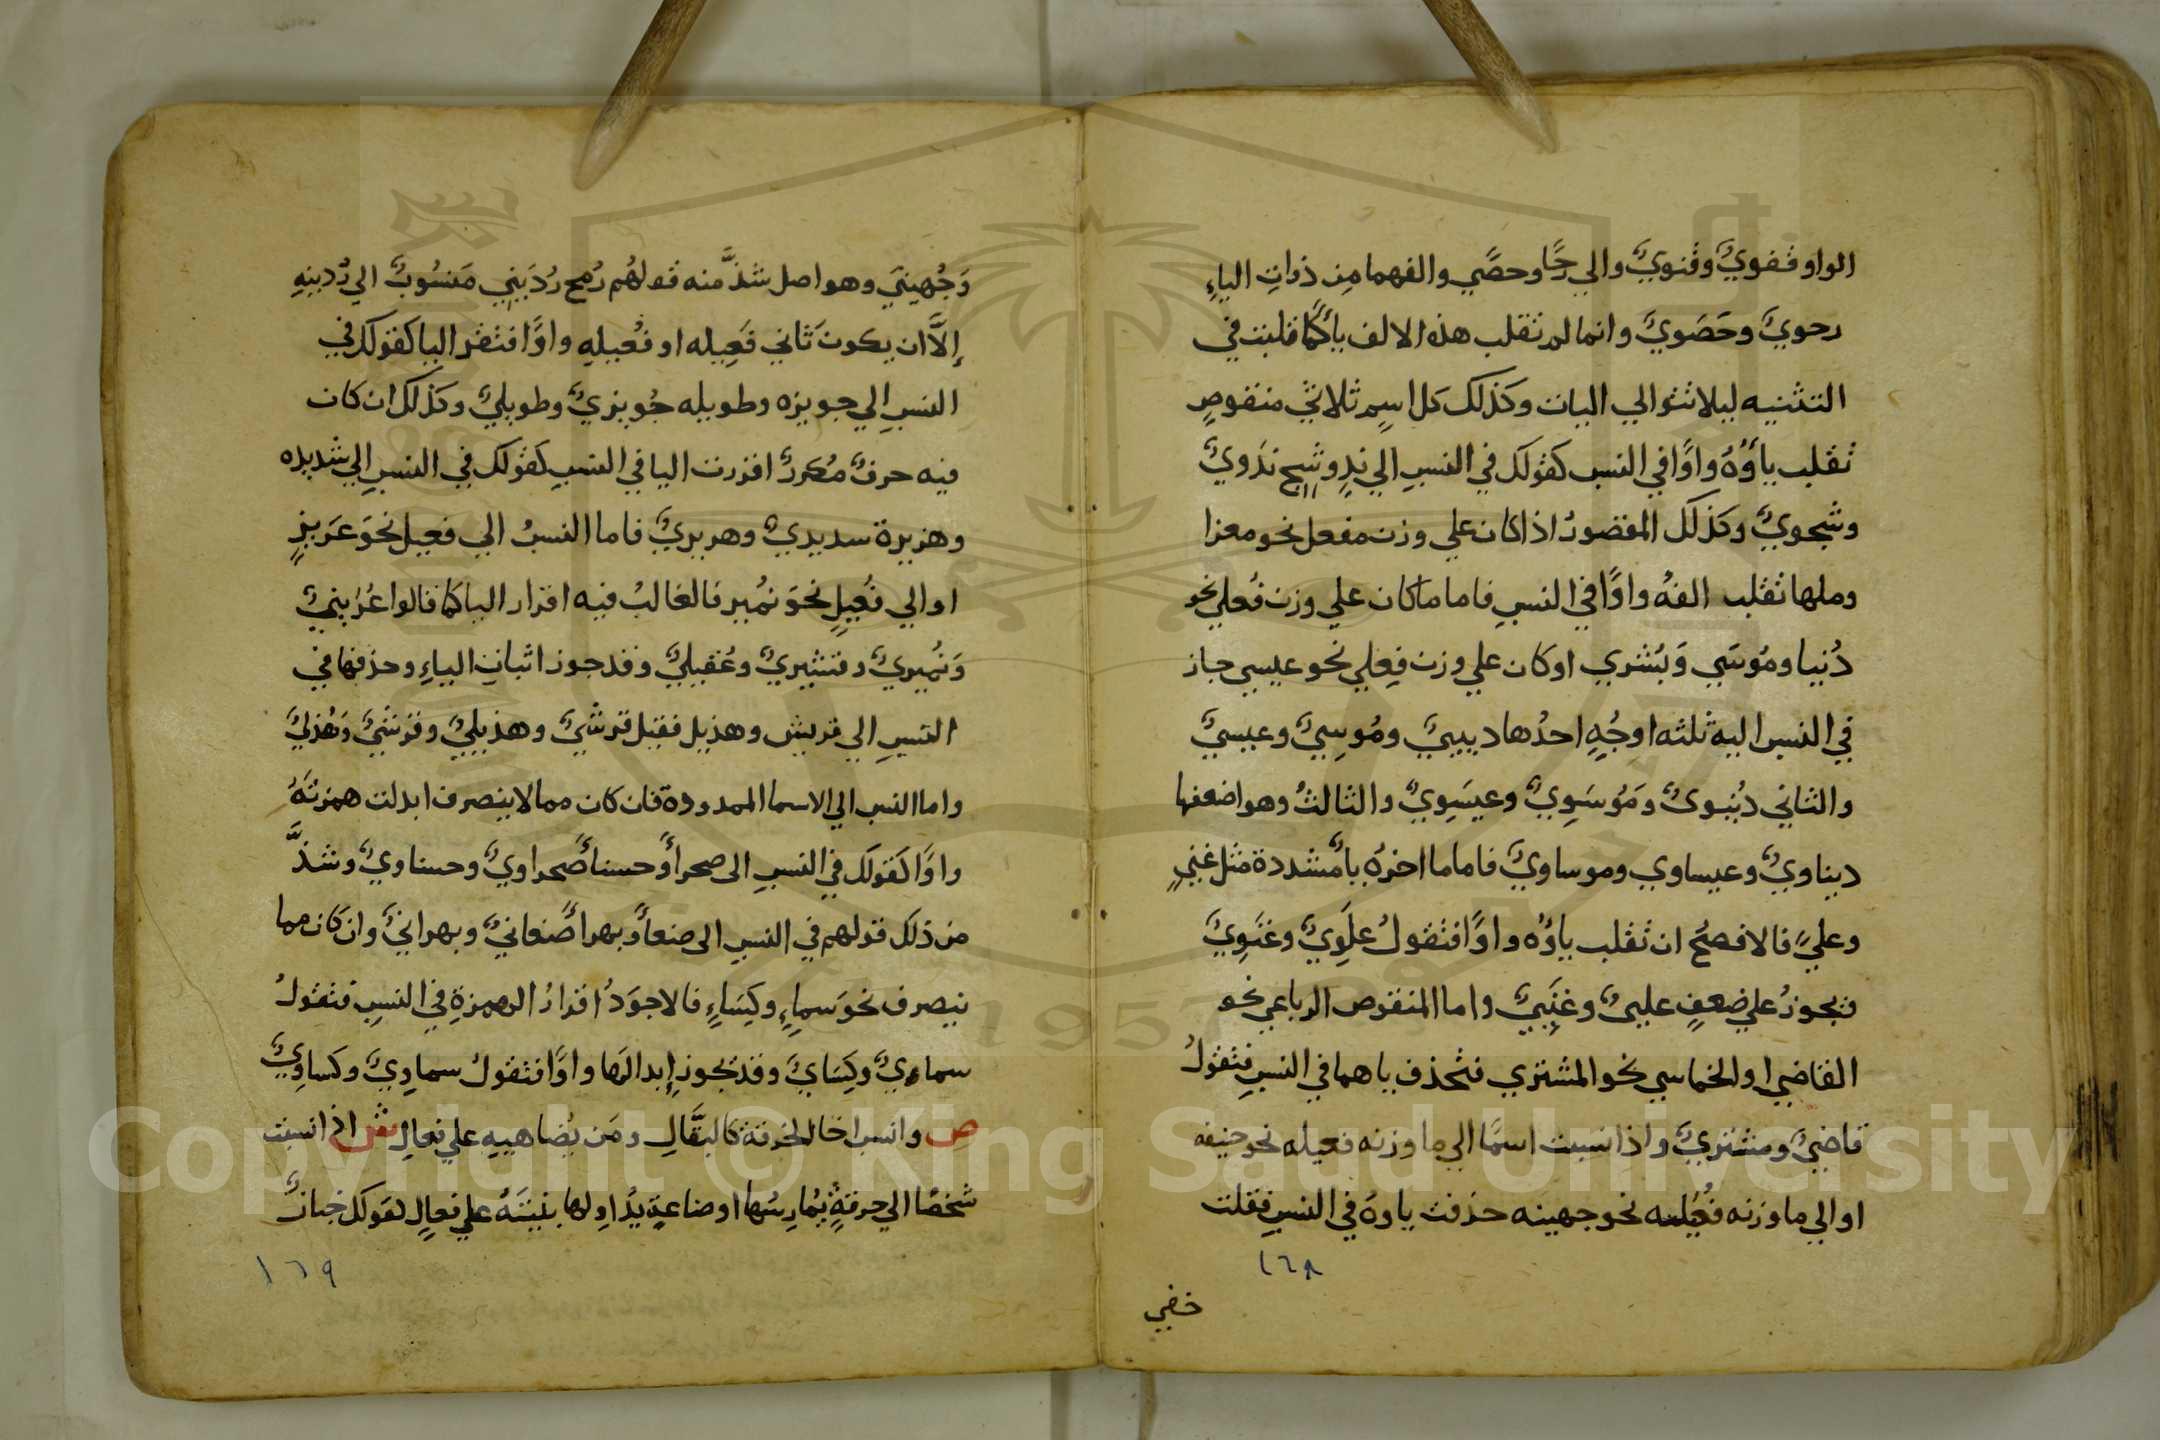 الواو قفويٌّ وقنويٌّ والي رحًا وحصًي والفهما من ذوات الياءِ
رحويٌّ وحَصَويٌّ وانما لم تقلب هذه الالف ياءً كما قلبت في
التثنيه ليلا تتوالي اليات وكذلك كل اسمٍ ثلاثي منقوصٍ
تقلب ياؤُهُ واوًا في النسب كقولك في النسبِ الي ندٍ وشجٍ نَدَويٌّ
وشجويٌّ وكذلك المقصورُ اذا كان علي وزن مفعل نحو مغزا
وملها تقلب الفهُ واوًا في النسبِ فاما ما كان علي وزن فُعلي نحو
دُنيا ومُوسَي وَبُشري او كان علي وزن فِعلي نحو عيسي جاز
في النسب اليه ثلثه اوجُهٍ احدُها دنييٌّ ومُوسِيٌّ وعيسيٌّ
والثاني دُنيويٌّ ومُوسَوِيٌّ وعيسَوِيٌّ والثالثُ وهو اضعفها
دنياويٌّ وعيساوي وموساويٌّ فاما ما اخرُه ياءٌ مشددة مثل غنيٍ
وعليٍّ فالافصحُ ان تقلب ياؤُه واوًا فتقولُ علَوِيٌّ وغنَوِيٌّ
ويجوزُ علي ضعفٍ علييٌّ وغنِييٌّ واما المنقوص الرباعي نحو
القاضي او الخماسي نحو المشتري فتحذف ياهما في النسبِ فتقولُ
قاضيٌّ ومشتريٌّ واذا نسبت اسمًا الي ما وزنه فعيله نحو حنيفه
او الي ما وزنه فُعَيله نحو جهينه حذفت ياوهُ في النسبِ فقلت
١٦٨
حنفي
وَجُهَنيٌّ وهو اصل شذَّ منه قولهُم رُمح رُدَينِي مَنسُوبٌ الي رُدينهِ
إلَّا ان يكون ثاني فَعِيله او فُعَيلهِ واوًا فتقر اليا كقولك في
النسبِ الي جويزه وطويله جُويزيٌّ وطويليٌّ وكذلك ان كان
فيه حرفٌ مُكررٌ اقررت اليا في النسبِ كقولك في النسبِ الي شديده
وهزيرة سديديٌّ وهريريٌّ فاما النسبُ الي فعيل نحوَ عَزيزٍ
او الي فُعَيلٍ نحوَ نُمير فالغالبُ فيه اقرار اليا كما قالوا عُرَينيٌّ
وَنُميريٌّ وقشيريٌّ وعُقيليٌّ وقد جوز اثبات الياءِ وحذفها في
النسبِ الي قريش وهذيل فقيل قرشيٌّ وهذيليٌّ وقرشيٌّ وَهُذليٌّ
واما النسب الي الاسما الممدودة فان كان مما لا ينصرف ابدلت همزتَهُ
واوًا كقولك في النسبِ الى صحراءَ وحسناءَ صَحراويٌّ وحسناويٌّ وشذَّ
من ذلك قولهم في النسبِ الى صنعاءَ وبهراءَ صَنعانيٌّ وبهرانيٌّ وان كان مما
ينصرف نحوَ سماءٍ وكِسَاءٍ فالاجوَدُ اقرارُ الهمزةِ في النسبِ فتقولُ
سماءيٌّ وكِسَايٌّ وقد يجوز إبدالها واوًا فتقولُ سماوِيٌّ وكساوِيٌّ
ص وانسب اخا الحرفة كالبقَّالِ ومَن يُضاهييهِ علي فعالِ ش اذا نسبت
شخصًا الي حرفةٍ يُمارِسُها او صناعةٍ يُداوِلها بنيتَهُ علي فعالٍ كقولك خبازٌ
١٦٩